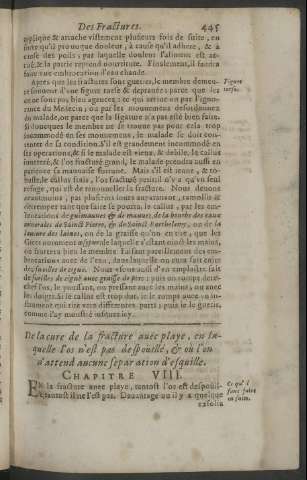 Des Fractures. 445
applique & attache vistement plusieurs fois de suite, en
sorte qu'il prouoque douleur, à cause qu'il adhere, & à
cause des poils; par laquelle douleur l'aliment est at-
tiré, & la partie reprend nourriture. Finalement, il faudra
faire vne embrocation d'eau chaude.
Apres que les fractures sont gueries, le membre demeu-
re souuent d'vne figure torse & deprauée: parce que les
os ne sont pas bien agencez: ce qui arriue ou par l'igno-
rance du Medecin, ou par les mouuemens desordonnez
du malade, ou parce que la ligature n'a pas esté bien faite.
Si doncques le membre ne se trouue par pour cela trop
incommodé en ses mouuemens, le malade se doit con-
tenter de sa condition. S'il est grandement incommodé en
ses operations, & si le malade est vieux, & debile, la callus
inueteré, & l'os fracturé grand, le malade prendra aussi en
patience sa mauuaise fortune. Mais s'il est ieune, & ro-
buste, le callus frais, l'os fracturé petit, il n'y a qu'vn seul
refuge, qui est de renouueller la fracture. Nous deuons
neantmoins, par plusieurs iours auparauant, ramollir &
détremper tant que faire se pourra, le callus, par les em-
brocations de guimauues & de mauues, de la bourbe des eaux
minerales de Sainct Pierre, & de Sainct Barthelemy, ou de la
laueure des laines, ou de la graisse qu'on en tire, que les
Grecs nomment
on frottera bien le membre. En faisant pareillement des em-
brocations auec de l'eau, dans laquelle on aura fait cuire
des fueilles de ciguë.
les doigts. Si le callus est trop dur, ie le romps auec vn in-
strument qui tire vers differentes parts; puis ie le gueris,
comme i'ay monstré iusques icy.
De la cure de la fracture auec playe, en la-
quelle l'os n'est pas despouillé, & où l'on
n'attend aucune separation d'esquille.
CHAPITRE VIII.
EN la fracture auec playe, tantost l'os est despouil-
lé, tantost il ne l'est pas. Dauantage ou il y a quelque
Figure
torse.
Ce qu'il
faut faire